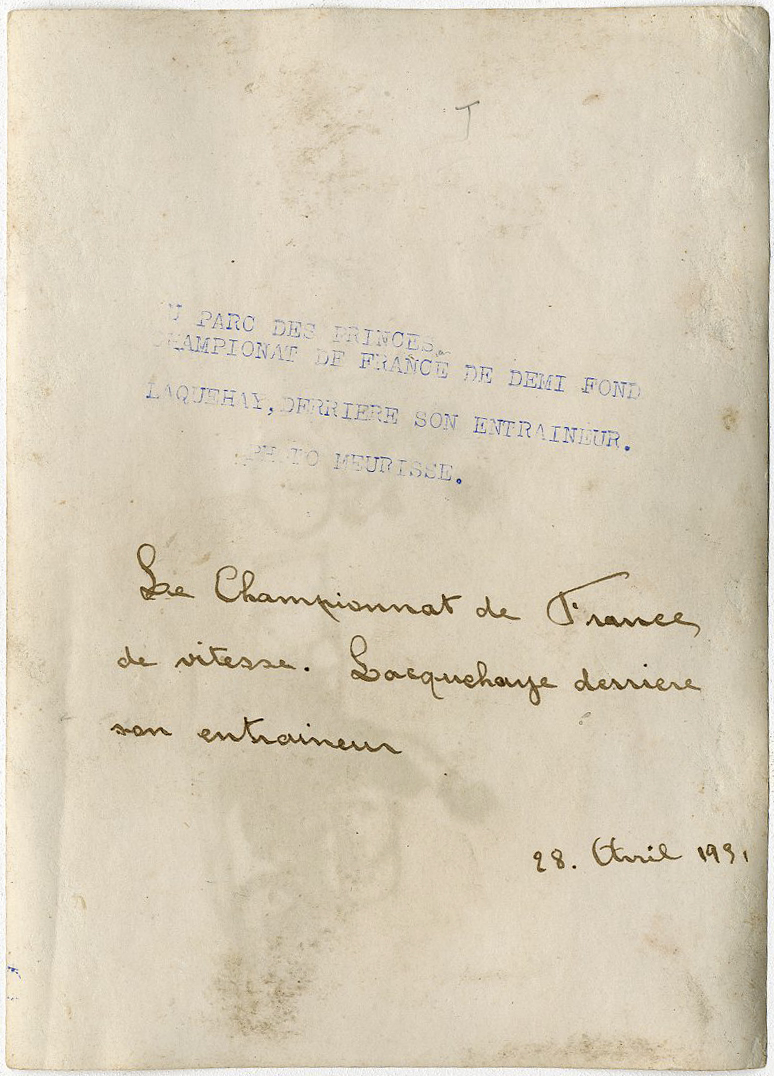 T
U PARC DES PRINCES.
CHAMPIONAT DE FRANCE DE DEMI FOND
LAQUEHAY, DERRIERE SON ENTRAINEUR.
PHOTO MEURISSE.
Le Championnat de France
de vitesse. Lacquehaye derriere
son entraineur
28. Avril 1931